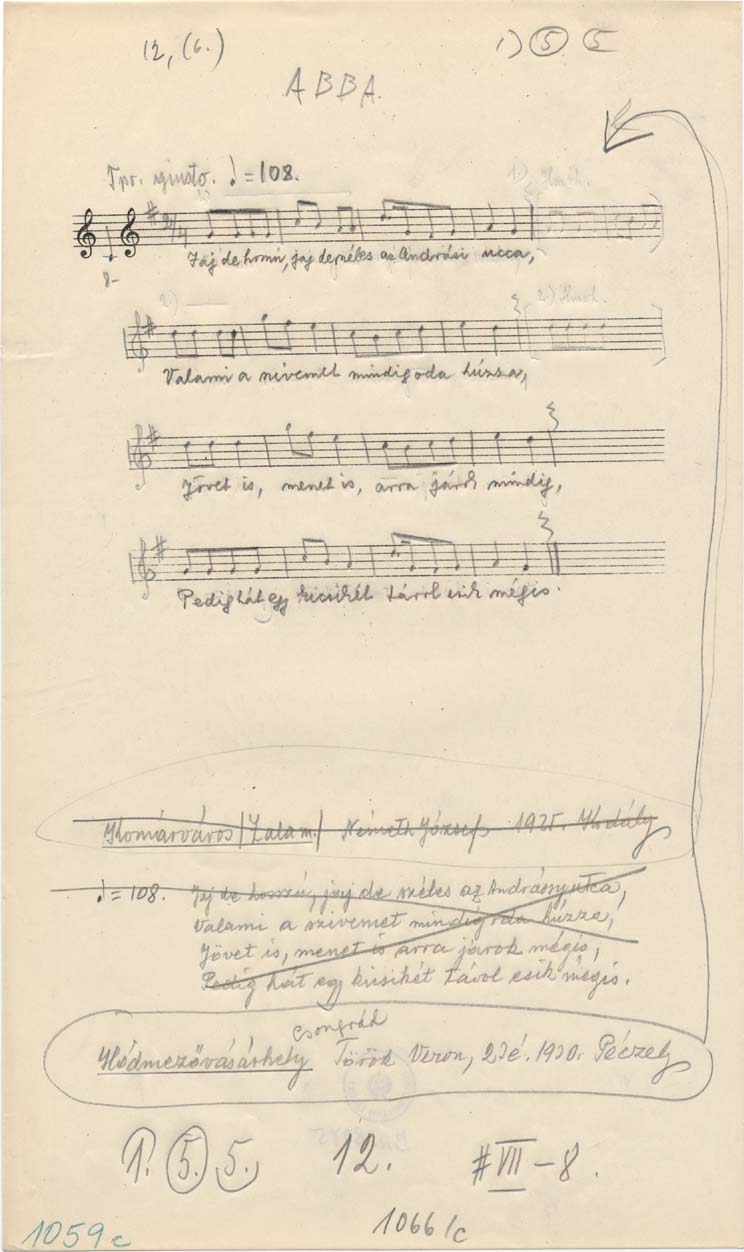 12, (6.) 1) 5 5
ABBA.
Tpo. giusto. ♩=108.
1) Hmvh.
2/4
8-
Jaj de hosszú, jaj de széles az Andrási ucca,
2.) 2.) Hmvh.
Valami a szívemet mindig oda húzza,
Jövet is, menet is, arra járok mindig,
Pedig hát egy kicsikét távol esik mégis.
Komárváros (Zala m.) Németh József 1925. Kodály
♩=108. Jaj de hosszú, jaj de széles az Andrássy utca,
Valami a szivemet mindig oda húzza,
Jövet is, menet is arra járok mégis,
Pedig hát egy kicsikét távol esik mégis.
Csongrád
Hódmezővásárhely Török Veron, 23 é. 1930. Péczely
1. 5. 5. 12. # VII – 8.
1059 c 1066/c